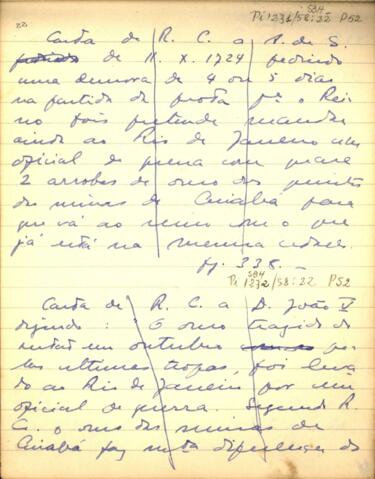 SBH
Pi 1231/58:22 P52
22
Carta de R. C. a A. de S.
de 11. X. 1724 pedindo
uma demora de 4 ou 5 dias
na partida da frota pª. o Rei
no pois pretende mandar
ainda ao Rio de Janeiro um
oficial de guerra com quase
2 arrobas de ouro dos quintos
das minas de Cuiabá para
que vá ao reino com o que
já está na mesma cidade.
pg. 338. _
SBH
Pi 1232/58:22 P52
Carta de R. C. a D. João V
dizendo: "O ouro tragido do
em outubro pe
las ultimas tropas, foi leva
do ao Rio de Janeiro por um
oficial de guerra. Segundo R.
C. o ouro das minas de
Cuiabá faz mta diferença do